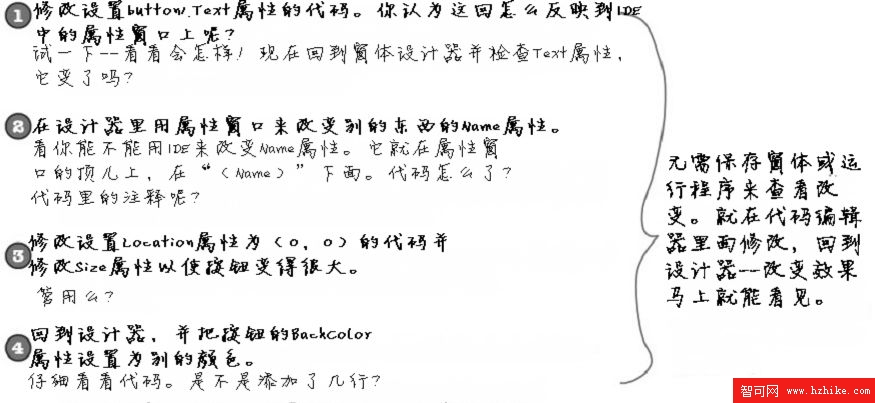 1 修改设置button.Text属性的代码。你认为这回怎么反映到IDE
中的属性窗口上呢？
试一下--看看会怎样！现在回到窗体设计器并检查Text属性，
它变了吗？
2 在设计器里用属性窗口来改变别的东西的Name属性。
看你能不能用IDE来改变Name属性。它就在属性窗
口的顶儿上，在“（Name）”下面。代码怎么了？
代码里的注释呢？
3 修改设置Location属性为（0，0）的代码并
修改Size属性以使按钮变得很大。
管用么？
4 回到设计器，并把按钮的BackColor
属性设置为别的颜色。
仔细看看代码。是不是添加了几行？
无需保存窗体或运
行程序来查看改
变。就在代码编辑
器里面修改，回到
设计器--改变效果
马上就能看见。
智可网 www.hzhike.com